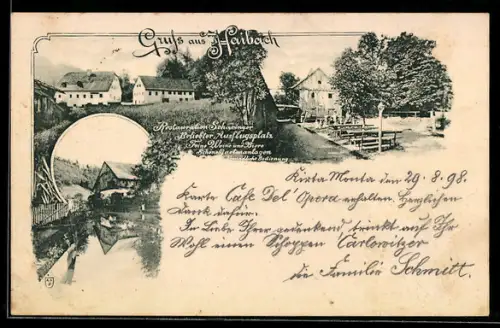 Gruss aus Haibach
Restauration Schwinger
Beliebter Ausflugsplatz
Feine Weine und Biere
Schöne Gartenanlagen
Bedienung
Kirta Monta den 29.8.98.
Karte Cafe Del' Opera erhalten. Herzlichen
Dank dafür.
In Liebe Ihrer gedenkend trinkt auf Ihr
Wohl einen Schoppen Carlowitzer
die Familie Schmitt.